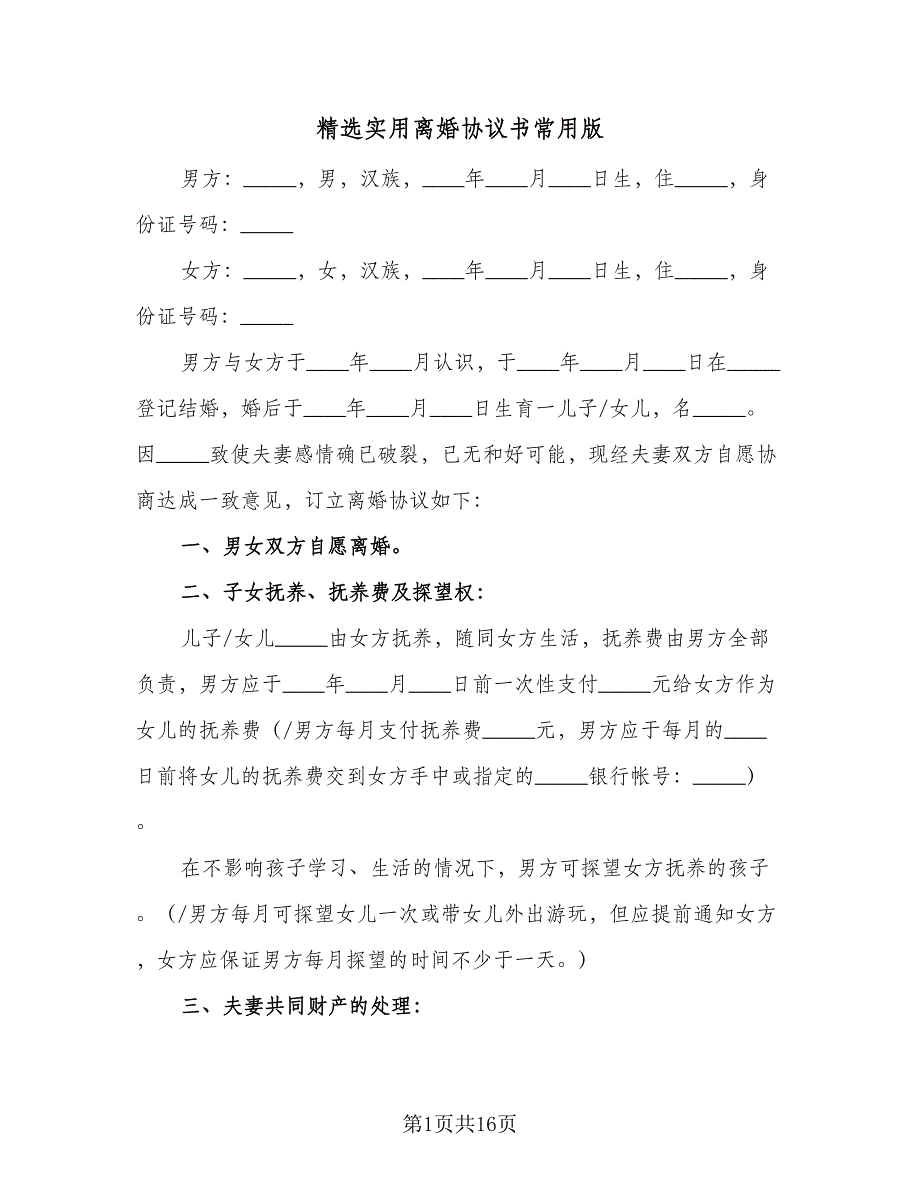 精选实用离婚协议书常用版
男方：_____，男，汉族，____年____月____日生，住_____，身
份证号码：_____
女方：_____，女，汉族，____年____月____日生，住_____，身
份证号码：_____
男方与女方于____年____月认识，于____年____月____日在_____
登记结婚，婚后于____年____月____日生育一儿子/女儿，名_____。
因_____致使夫妻感情确已破裂，已无和好可能，现经夫妻双方自愿协
商达成一致意见，订立离婚协议如下：
一、男女双方自愿离婚。
二、子女抚养、抚养费及探望权：
儿子/女儿_____由女方抚养，随同女方生活，抚养费由男方全部
负责，男方应于____年____月____日前一次性支付_____元给女方作为
女儿的抚养费（/男方每月支付抚养费_____元，男方应于每月的____
日前将女儿的抚养费交到女方手中或指定的_____银行帐号：_____）
。
在不影响孩子学习、生活的情况下，男方可探望女方抚养的孩子
。（/男方每月可探望女儿一次或带女儿外出游玩，但应提前通知女方
，女方应保证男方每月探望的时间不少于一天。）
三、夫妻共同财产的处理：
第1页共16页